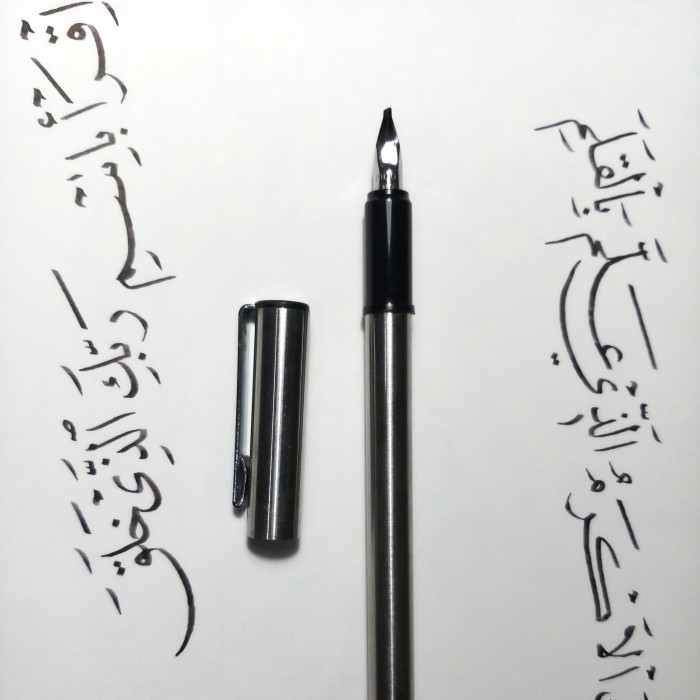 اقْرَأْ بِاسْمِ رَبِّكَ الَّذِي خَلَقَ
الْأَكْرَمُ الَّذِي عَلَّمَ بِالْقَلَمِ